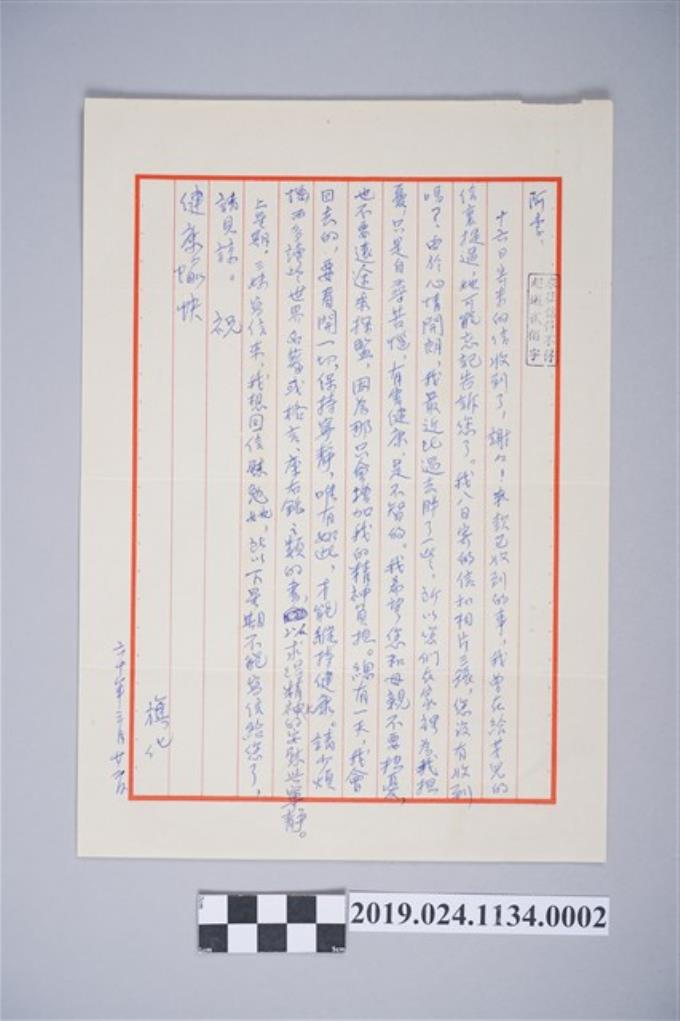 阿李、
十六日寄來的信收到了，謝々！來款已收到的事，我曾在給芽兒的
信裏提過，她可能忘記告訴您了。我八日寄的信和相片三張，您沒有收到
嗎？由於心情開朗，我最近比過去胖了一些，所以您們在家裡為我担
憂，只是自尋苦惱，有害健康，是不智的。我希望您和母親不要担憂，
也不要遠途來探監，因為那只會增加我的精神負担。總有一天，我會
回去的，要看開一切，保持寧靜，唯有如此，才能維持健康。請少煩
惱而多讀些世界名著或格言、座右銘之類的書，以求得精神上的安慰與寧靜。
上星期，三妹寫信來，我想回信慰勉她，所以下星期不能寫信給您了，
請見諒。 祝
健康愉快
旗化
六十年三月廿一日
超過貳佰字
2019.024.1134.0002